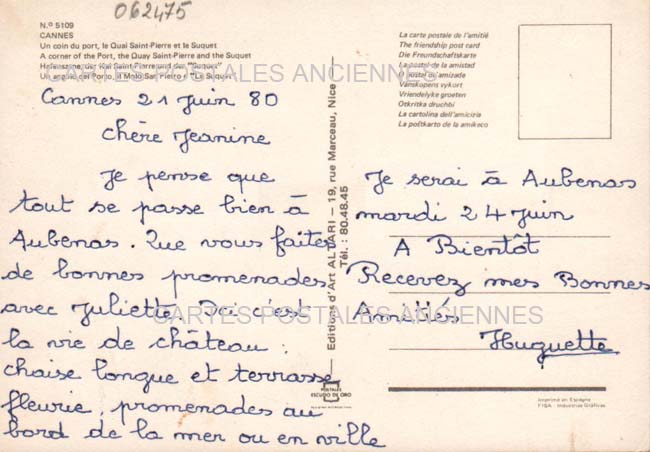 062475
N.º 5109
CANNES
Un coin du port, le Quai Saint-Pierre et le Suquet
A corner of the Port, the Quay Saint-Pierre and the Suquet
"Suquet"
"Le Suquet"
CARTES POSTALES ANCIENNES
Cannes 21 Juin 80
Chère Jeanine
Je pense que
tout se passe bien à
Aubenas. Que vous faites
de bonnes promenades
avec Juliette. Ici c'est
la vie de château :
chaise longue et terrasse
fleurie, promenades au
bord de la mer ou en ville
La carte postale de l'amitié
The friendship post card
Die Freundschaftskarte
La postal de la amistad
postal da amizade
Vanskapens vykort
Vriendelyke groeten
Otkritka druchbi
La cartolina dell'amicizia
La poŝtkarto de la amikeco
Editions d'Art — 19, rue Marceau, Nice —
Tél. : 80.48.45
Je serai à Aubenas
mardi 24 Juin
A Bientôt
Recevez mes Bonnes
Amitiés
Huguette
CARTES POSTALES ANCIENNES
POSTALES
ESCUDO DE ORO
Imprimé en Espagne
FISA - Industrias Gráficas